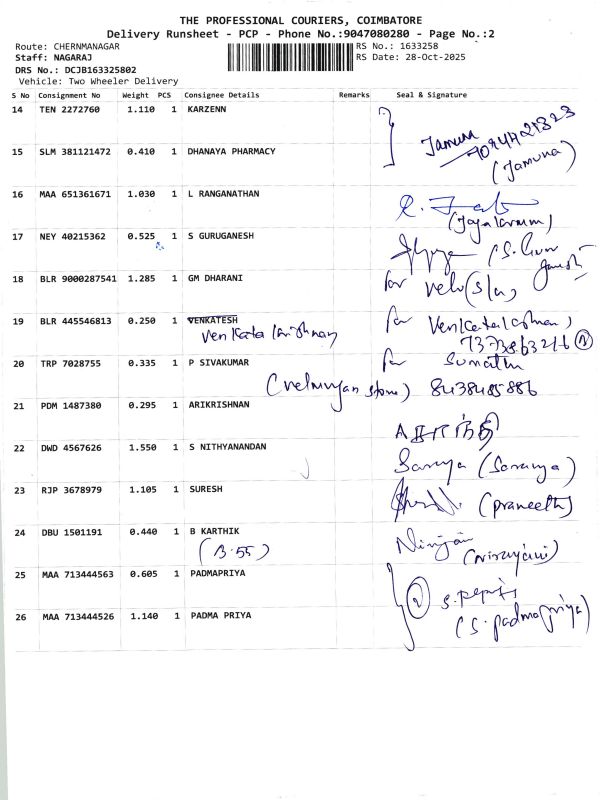 THE PROFESSIONAL COURIERS, COIMBATORE
Delivery Runsheet - PCP - Phone No.:9047080280 - Page No.:2
Route: CHERNMANAGAR RS No.: 1633258
Staff: NAGARAJ RS Date: 28-Oct-2025
DRS No.: DCJB163325802
Vehicle: Two Wheeler Delivery
S No Consignment No Weight PCS Consignee Details Remarks Seal & Signature
14 TEN 2272760 1.110 1 KARZENN
Jamuna
15 SLM 381121472 0.410 1 DHANAYA PHARMACY
(Jamuna)
16 MAA 651361671 1.030 1 L RANGANATHAN
17 NEY 40215362 0.525 1 S GURUGANESH
18 BLR 9000287541 1.285 1 GM DHARANI for
19 BLR 445546813 0.250 1 VENKATESH for
20 TRP 7028755 0.335 1 P SIVAKUMAR for Sumathi
8438485886
21 PDM 1487380 0.295 1 ARIKRISHNAN
22 DWD 4567626 1.550 1 S NITHYANANDAN
Saranya (Saranya)
23 RJP 3678979 1.105 1 SURESH
(praneeth)
24 DBU 1501191 0.440 1 B KARTHIK
(B.55)
25 MAA 713444563 0.605 1 PADMAPRIYA
2
26 MAA 713444526 1.140 1 PADMA PRIYA
(S. padmapriya)